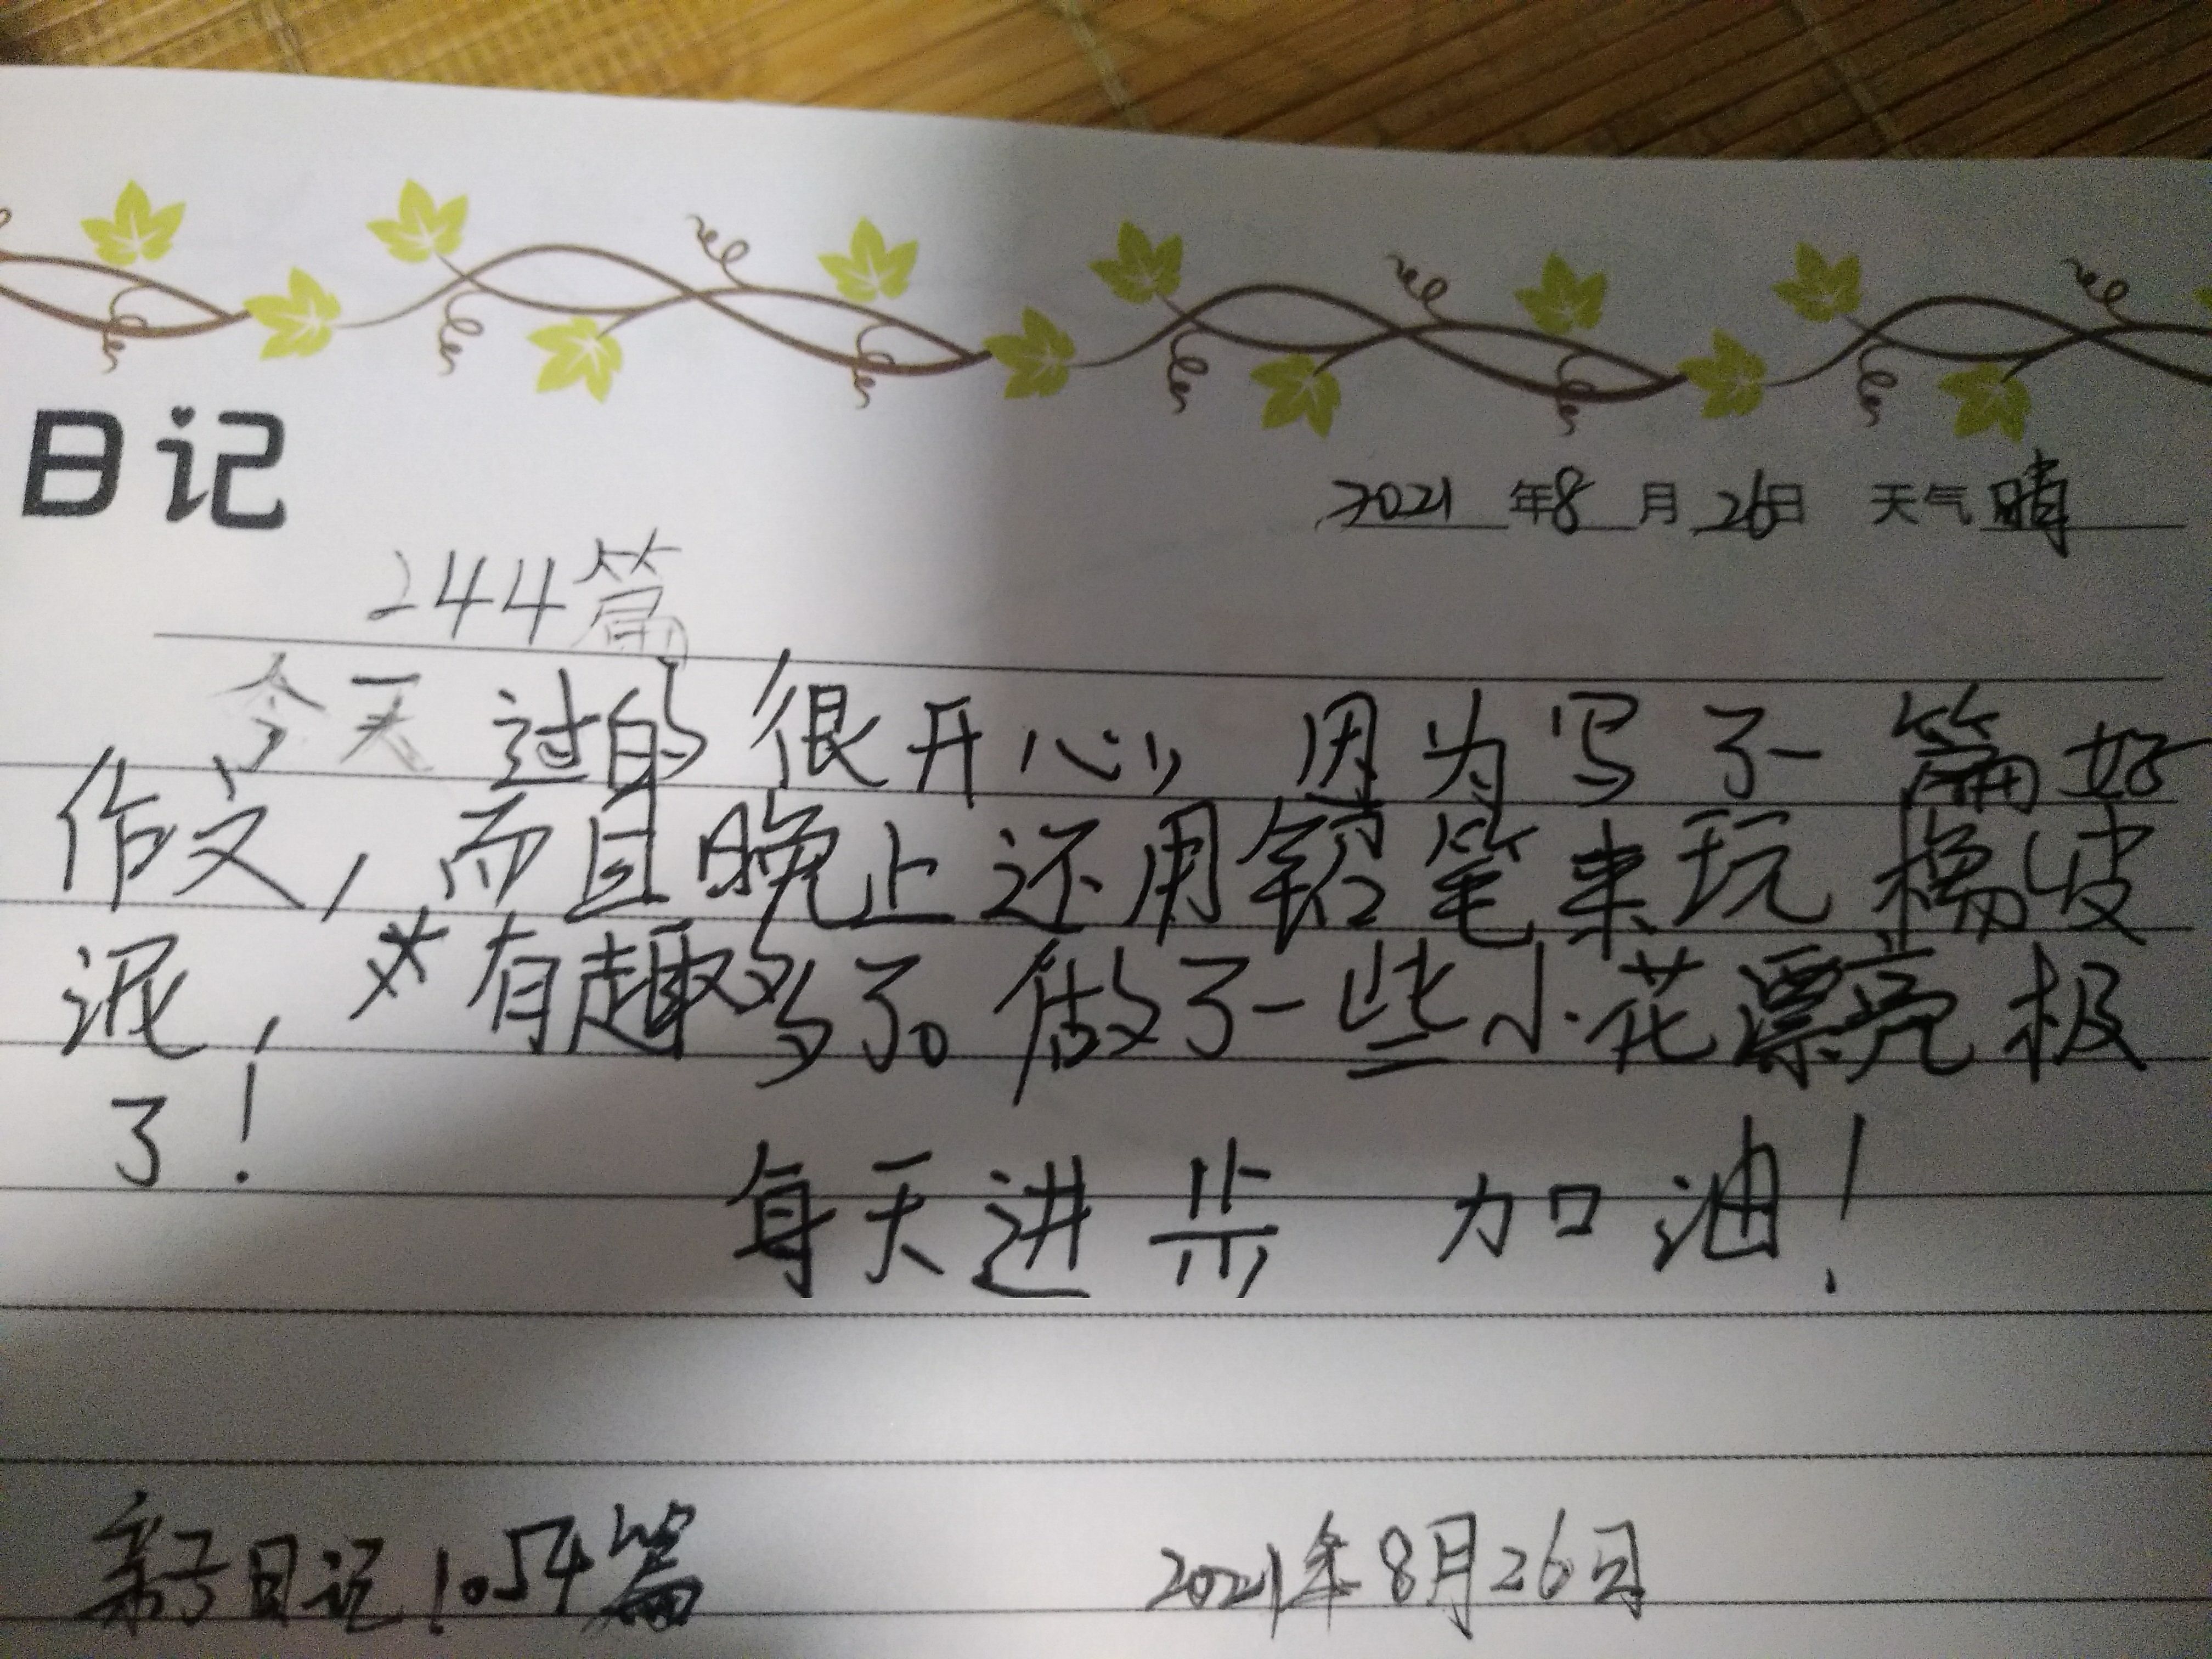 日记
2021年8月26日 天气晴
244篇
今天过的很开心,因为写了一篇好
作文,而且晚上还用铅笔来玩橡皮
泥,有趣多了。做了一些小花漂亮极
了!
每天进步 加油!
亲子日记1054篇 2021年8月26日